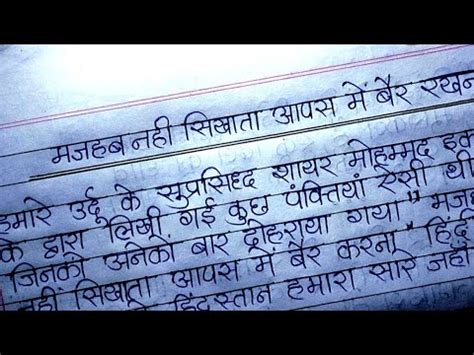 मजहब नही सिखाता आपस में बैर रखन
हमारे उर्दू के सुप्रसिध्द शायर मोहम्मद इक
के द्वारा लिखी गई कुछ पंक्तियां ऐसी थी
जिनको अनेको बार दोहराया गया " मजह
नहीं सिखाता आपस में बैर करना, हिंदी
हिंदुस्तान हमारा सारे जहाँ